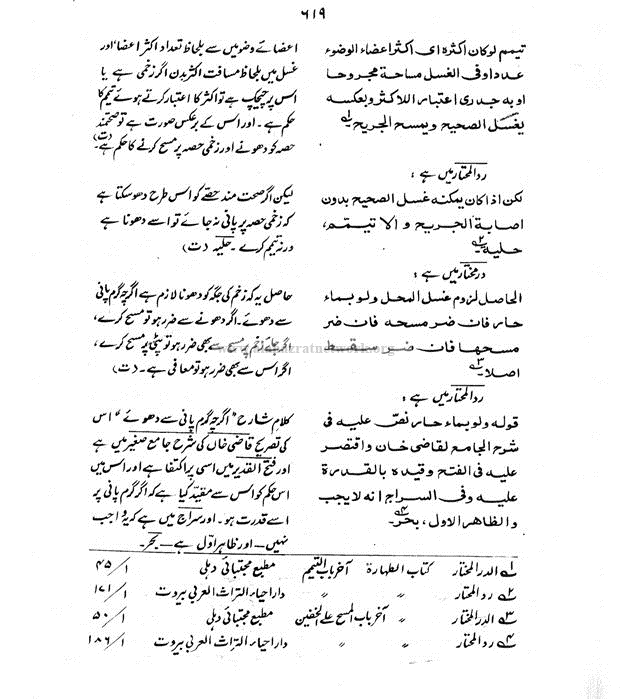 ٦١٩
تیمم لوکان اکثرہ ای اکثر اعضاء الوضوء
عددا وفی الغسل مساحة مجروحا
اوبه جدری اعتبار اللاکثر وبعکسه
یغسل الصحیح ویمسح الجریح۱؎
اعضائے وضو میں سے بلحاظ تعداد اکثر اعضا، اور
غسل میں بلحاظ مسافت اکثر بدن اگر زخمی ہے یا
اس پر چیچک ہے تو اکثر کا اعتبار کرتے ہوئے تیمم کا
حکم ہے۔ اور اس کے برعکس صورت ہے تو صحتمند
حصہ کو دھونے اور زخمی حصہ پر مسح کرنے کا حکم ہے۔ (ت)
ردالمحتار میں ہے :
لکن اذا کان یمکنه غسل الصحیح بدون
اصابة الجریح والا تیمم،
حلیه۲؎
لیکن اگر صحت مند حصّے کو اس طرح دھو سکتا ہے
کہ زخمی حصہ پر پانی نہ جائے تو اسے دھونا ہے
ورنہ تیمم کرے۔ حلیہ (ت)
درمختار میں ہے :
الحاصل لزوم غسل المحل ولو بماء
حار فان ضر مسحه فان ضر
مسحها فان ضر سقط
اصلا۳؎
حاصل یہ کہ زخم کی جگہ کو دھونا لازم ہے اگرچہ گرم پانی
سے دھوئے۔ اگر دھونے سے ضرر ہو تو مسح کرے،
اگر جائے زخم پر مسح سے بھی ضرر ہو تو پٹی پر مسح کرے،
اگر اس سے بھی ضرر ہو تو معافی ہے۔ (ت)
ردالمحتار میں ہے :
قوله ولو بماء حار نصّ علیه فی
شرح الجامع لقاضی خان واقتصر
علیه فی الفتح وقیدہ بالقدرة
علیه وفی السراج انه لایجب
والظاهر الاول، بحر۴؎
کلام شارح "اگرچہ گرم پانی سے دھوئے" اس
کی تصریح قاضی خاں کی شرح جامع صغیر میں ہے
اور فتح القدیر میں اسی پر اکتفا ہے اور اس میں
اس حکم کو اس سے مقیّد کیا ہے کہ اگر گرم پانی پر
اسے قدرت ہو۔ اور سراج میں ہے کہ یہ واجب
نہیں — اور ظاہر اول ہے — بحر۔
۱؎ الدرالمختار کتاب الطہارة آخر باب التیمم مطبع مجتبائی دہلی ۱/۴۵
۲؎ ردالمحتار ״ ״ داراحیاء التراث العربی بیروت ۱/۱۷۱
۳؎ الدرالمختار ״ آخر باب المسح علی الخفین مطبع مجتبائی دہلی ۱/۵۰
۴؎ ردالمحتار ״ ״ داراحیاء التراث العربی بیروت ۱/۱۸۶